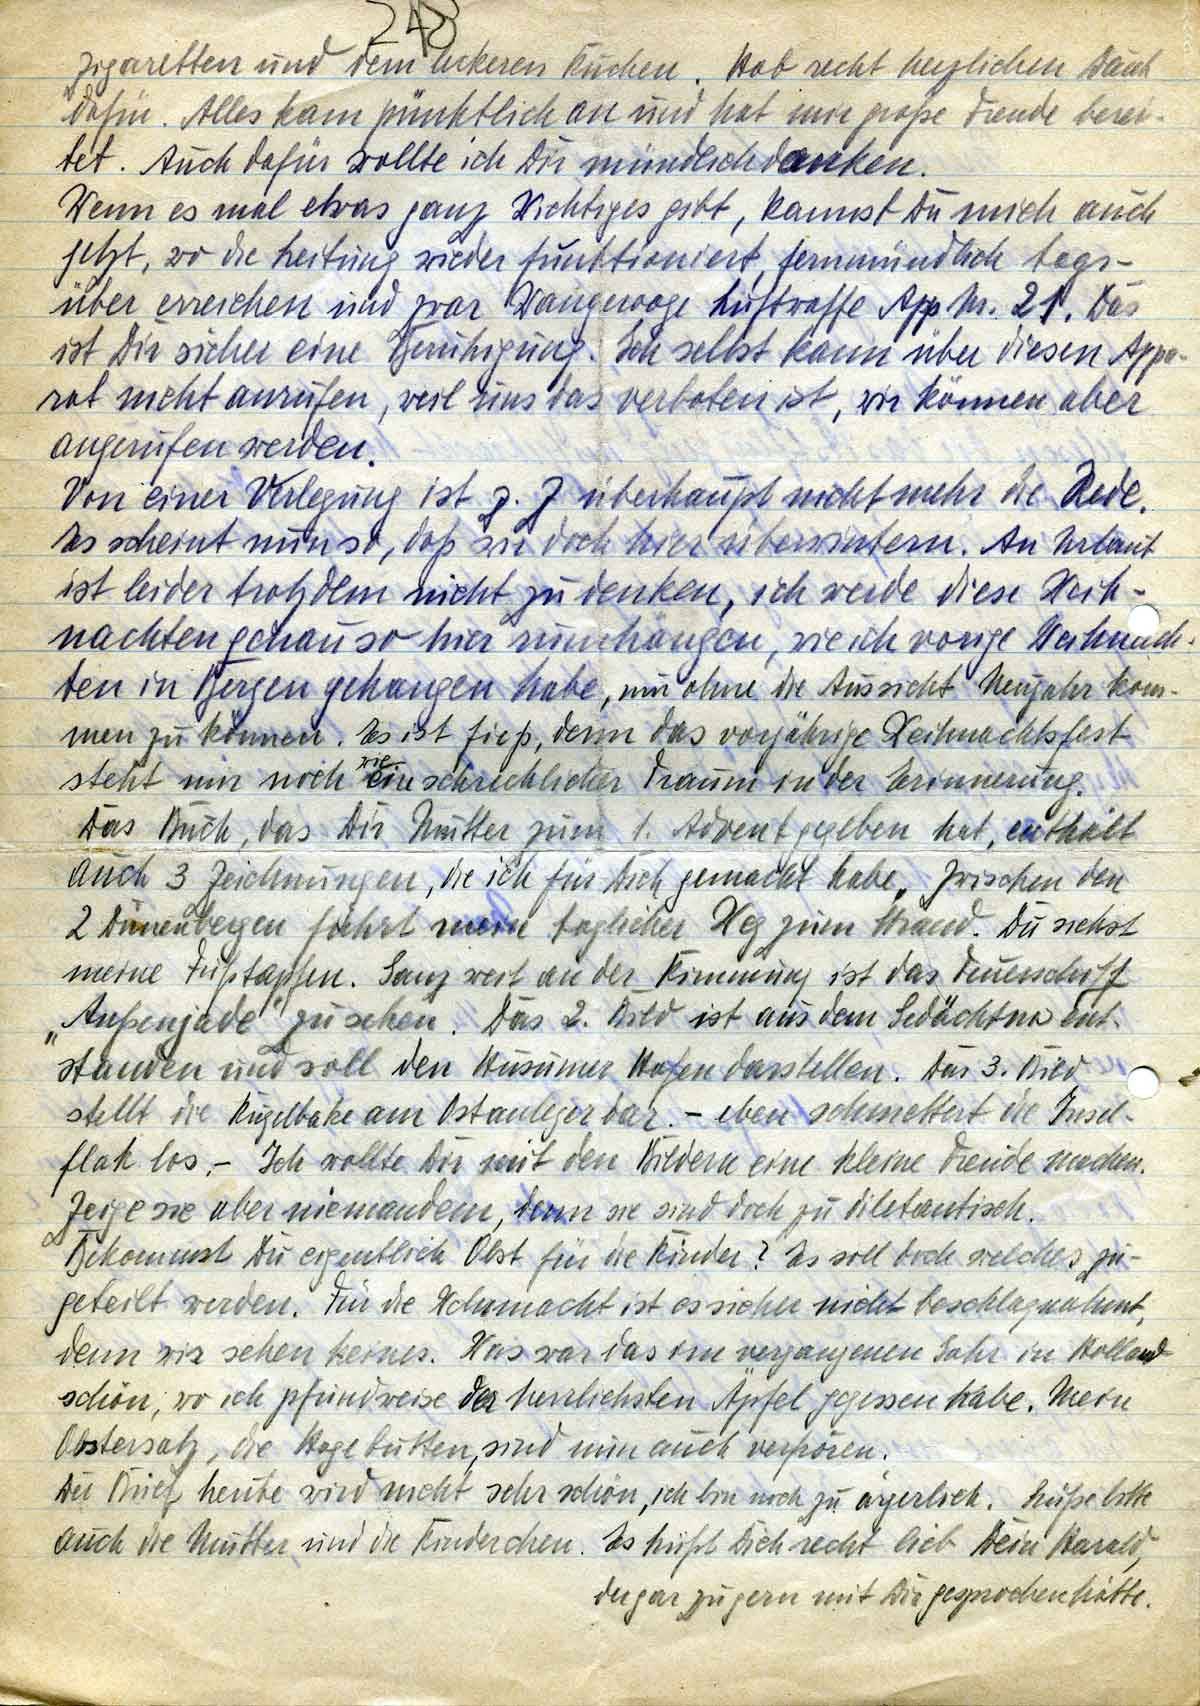 248
Zigaretten und dem leckeren Kuchen. Hab recht herzlichen Dank
dafür. Alles kam pünktlich an und hat mir große Freude berei-
tet. Auch dafür wollte ich Dir mündlich danken.
Wenn es mal etwas ganz Wichtiges gibt, kannst Du mich auch
jetzt, wo die Leitung wieder funktioniert, fernmündlich tags-
über erreichen und zwar Wangerooge Luftwaffe App Nr. 21. Das
ist Dir sicher eine Beruhigung. Ich selbst kann über diesen Appa-
rat nicht anrufen, weil uns das verboten ist, wir können aber
angerufen werden.
Von einer Verlegung ist z. Z überhaupt nicht mehr die Rede.
Es scheint nun so, daß wir doch hier überwintern. An Urlaub
ist leider trotzdem nicht zu denken, ich werde diese Weih-
nachten genau so hier rumhängen, wie ich vorige Weihnach-
ten in Bergen gehangen habe, nur ohne die Aussicht Neujahr kom-
men zu können. Es ist fies, denn das vorjährige Weihnachtsfest
steht mir noch wie ein schrecklicher Traum in der Erinnerung.
Das Buch, das Dir Mutter zum 1. Advent gegeben hat, enthält
auch 3 Zeichnungen, die ich für Dich gemacht habe. Zwischen den
2 Dünenbergen führt mein täglicher Weg zum Strand. Du siehst
meine Fußtapfen. Ganz weit an der Kimmung ist das Feuerschiff
„Außenjade" zu sehen. Das 2. Bild ist aus dem Gedächtnis ent-
standen und soll den Husumer Hafen darstellen. Das 3. Bild
stellt die Kugelbake am Ostanleger dar. - eben schmettert die Insel-
flak los, - Ich wollte Dir mit den Bildern eine kleine Freude machen.
Zeige sie aber niemandem, denn sie sind doch zu diletantisch.
Bekommst Du eigentlich Obst für die Kinder? Es soll doch welches zu-
geteilt werden. Für die Wehrmacht ist es sicher nicht beschlagnahmt,
denn wir sehen keines. Was war das im vergangenen Jahr in Holland
schön, wo ich pfundweise der herrlichsten Äpfel gegessen habe. Mein
Obstersatz, die Hagebutten, sind nun auch verfroren.
Der Brief heute wird nicht sehr schön, ich bin noch zu ärgerlich. Grüße bitte
auch die Mutter und die Kinderchen. Es küßt Dich recht lieb Dein Harald,
der gar zu gern mit Dir gesprochen hätte.